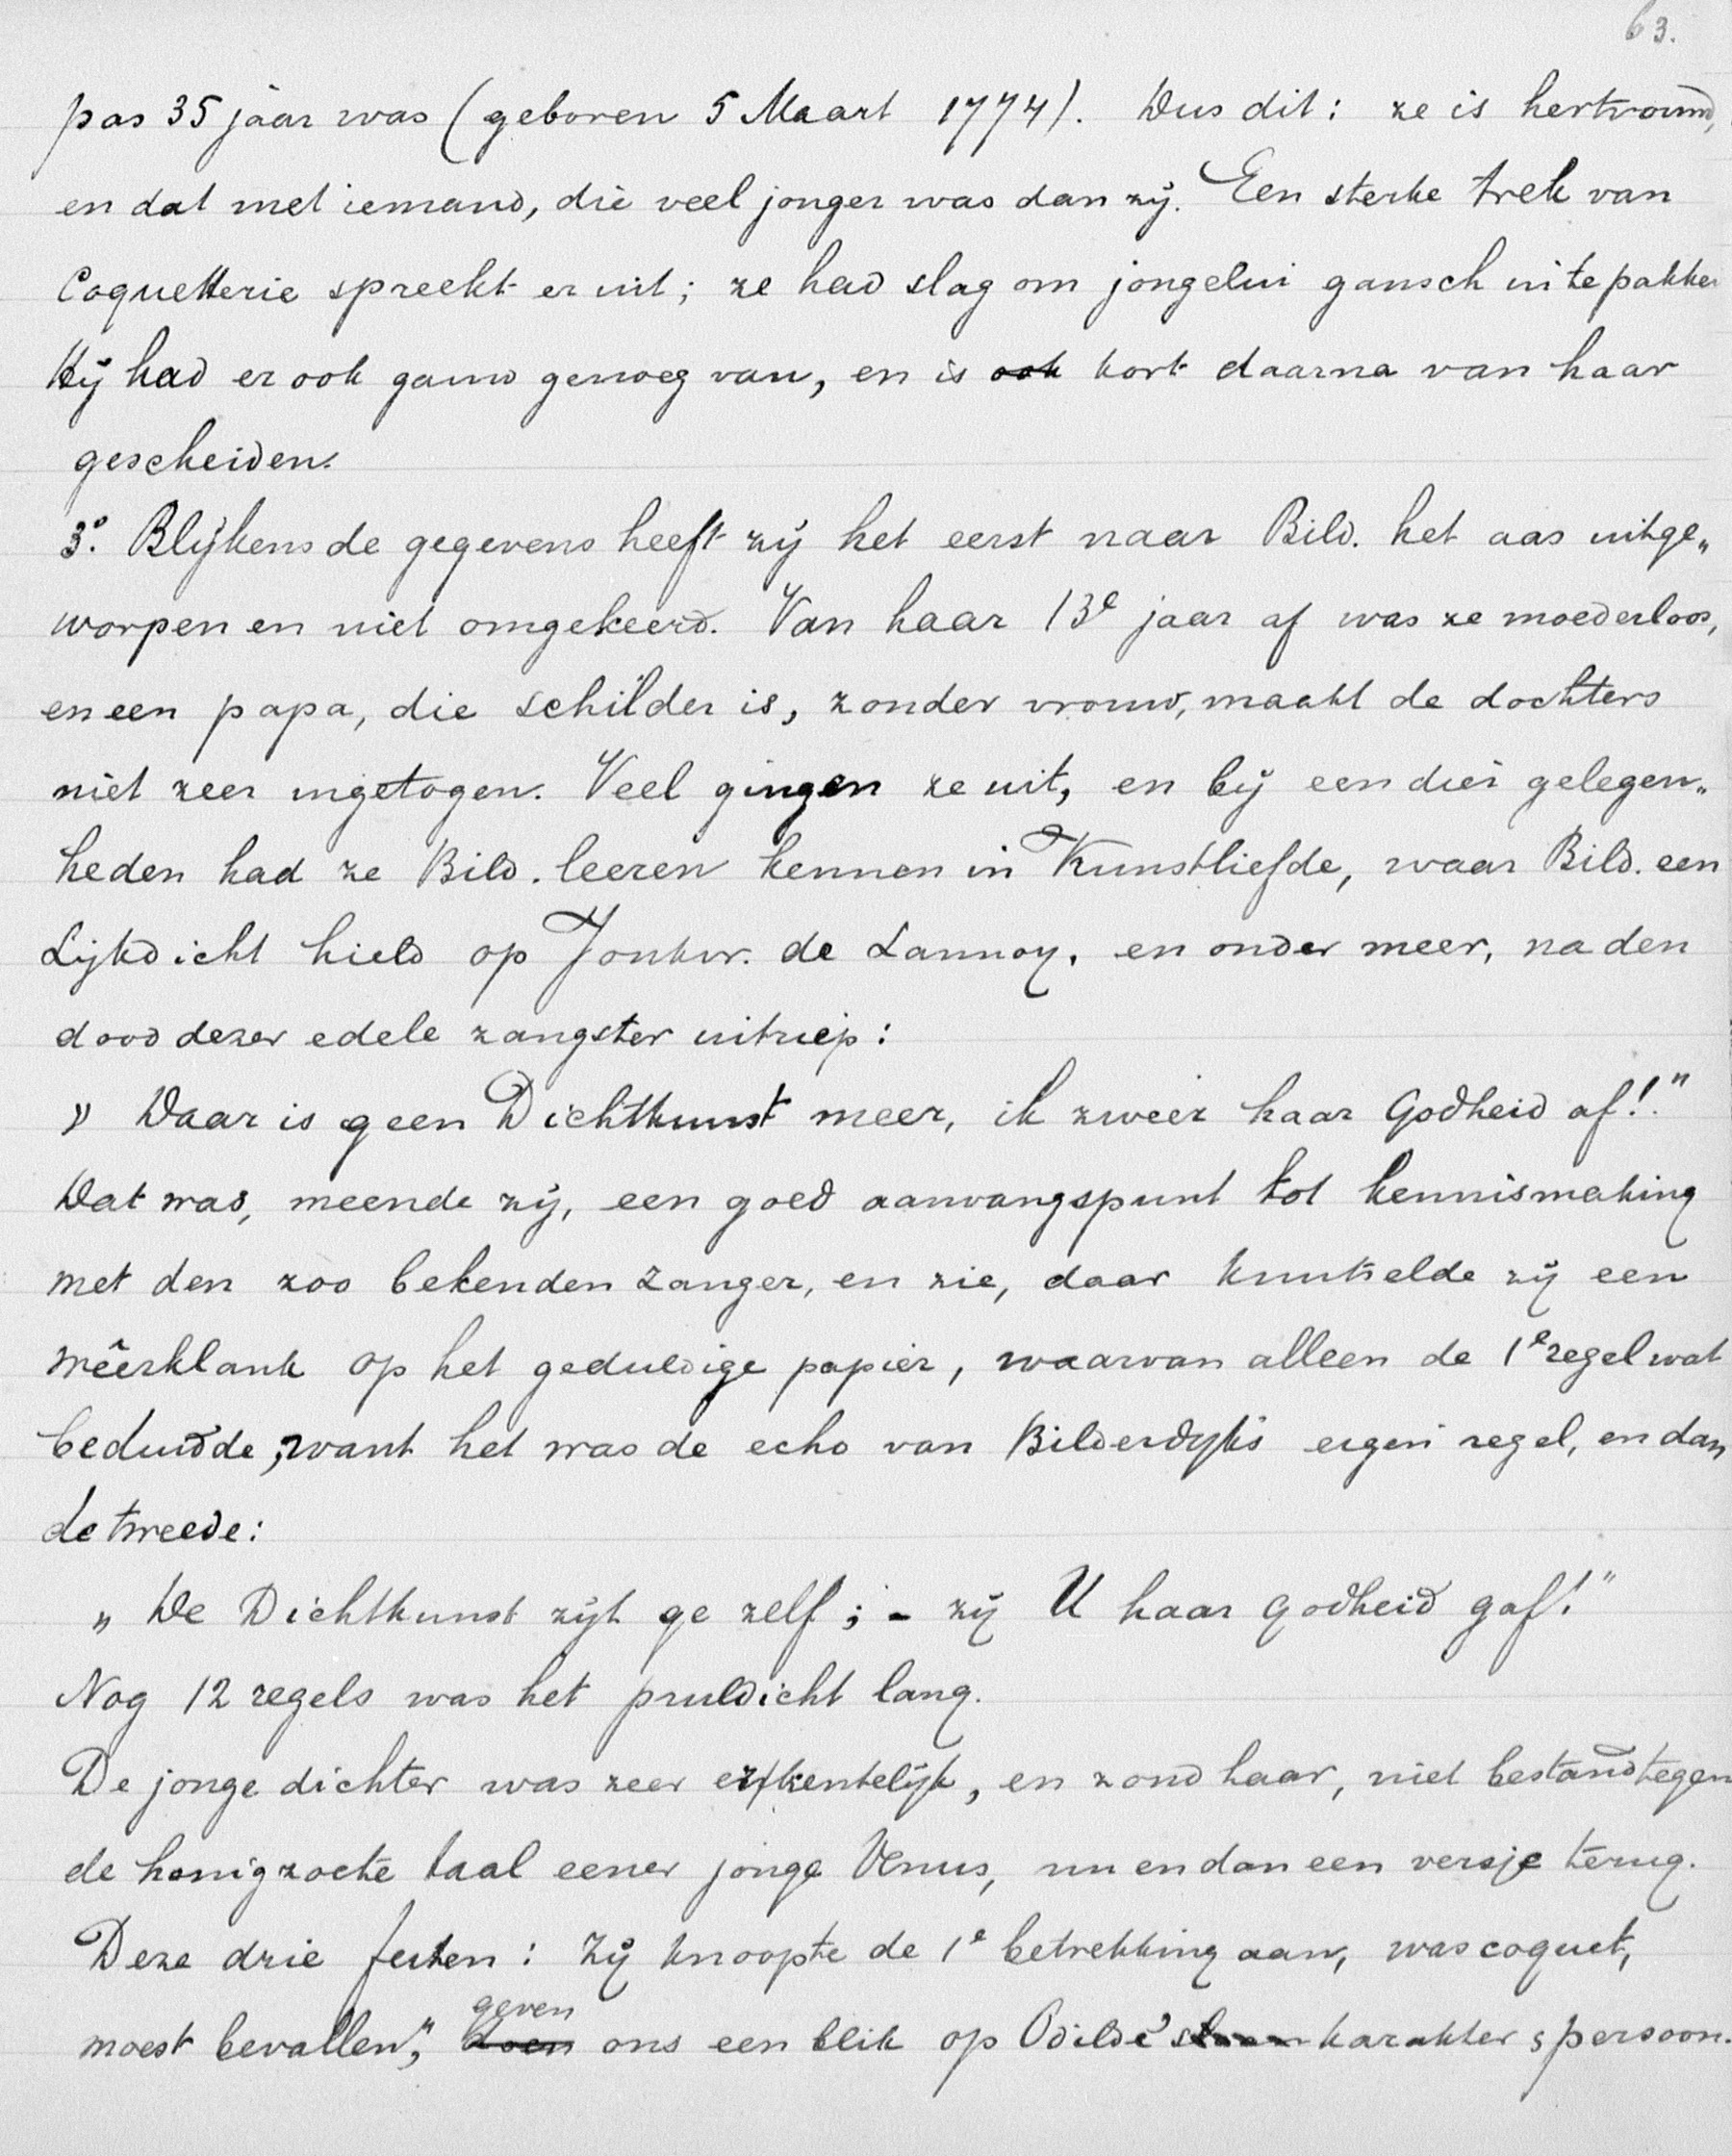 63.
pas 35 jaar was (geboren 5 Maart 1774). Dus dit: ze is hertrouwd,
en dat met iemand, die veel jonger was dan zij. Een sterke trek van
Coquetterie spreekt er uit; ze had slag om jongelui gansch in te pakken
Hij had er ook gauw genoeg van, en is ook kort daarna van haar
gescheiden.
3o. Blijkens de gegevens heeft zij het eerst naar Bild. het aas uitge„
worpen en niet omgekeerd. Van haar 13e jaar af was ze moederloos,
en een papa, die schilder is, zonder vrouw, maakt de dochters
niet zeer ingetogen. Veel gingen ze uit, en bij een dier gelegen„
heden had ze Bild. leeren kennen in Kunstliefde, waar Bild. een
Lijkdicht hield op Jonkvr. de Lannoy, en onder meer, na den
dood dezer edele zangster uitriep:
„ Daar is geen Dichtkunst meer, ik zweer haar Godheid af!"
Dat was, meende zij, een goed aanvangspunt tot kennismaking
met den zoo bekenden zanger, en zie, daar knutselde zij een
wêerklank op het geduldige papier, waarvan alleen de 1e regel wat
beduidde, want het was de echo van Bilderdijks eigen regel, en dan
de tweede:
„ De Dichtkunst zijt ge zelf; - zij U haar Godheid gaf!"
Nog 12 regels was het pruldicht lang.
De jonge dichter was zeer erkentelijk, en zond haar, niet bestand tegen
de honigzoete taal eener jonge Venus, nu en dan een versje terug.
Deze drie feiten: Zij knoopte de 1e betrekking aan, was coquet,
moest bevallen," doen geven ons een blik op Odilde's karakter & persoon.